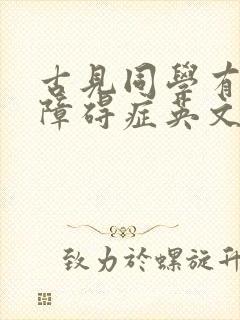 古見同學有
障碍症英文
致力於螺旋升